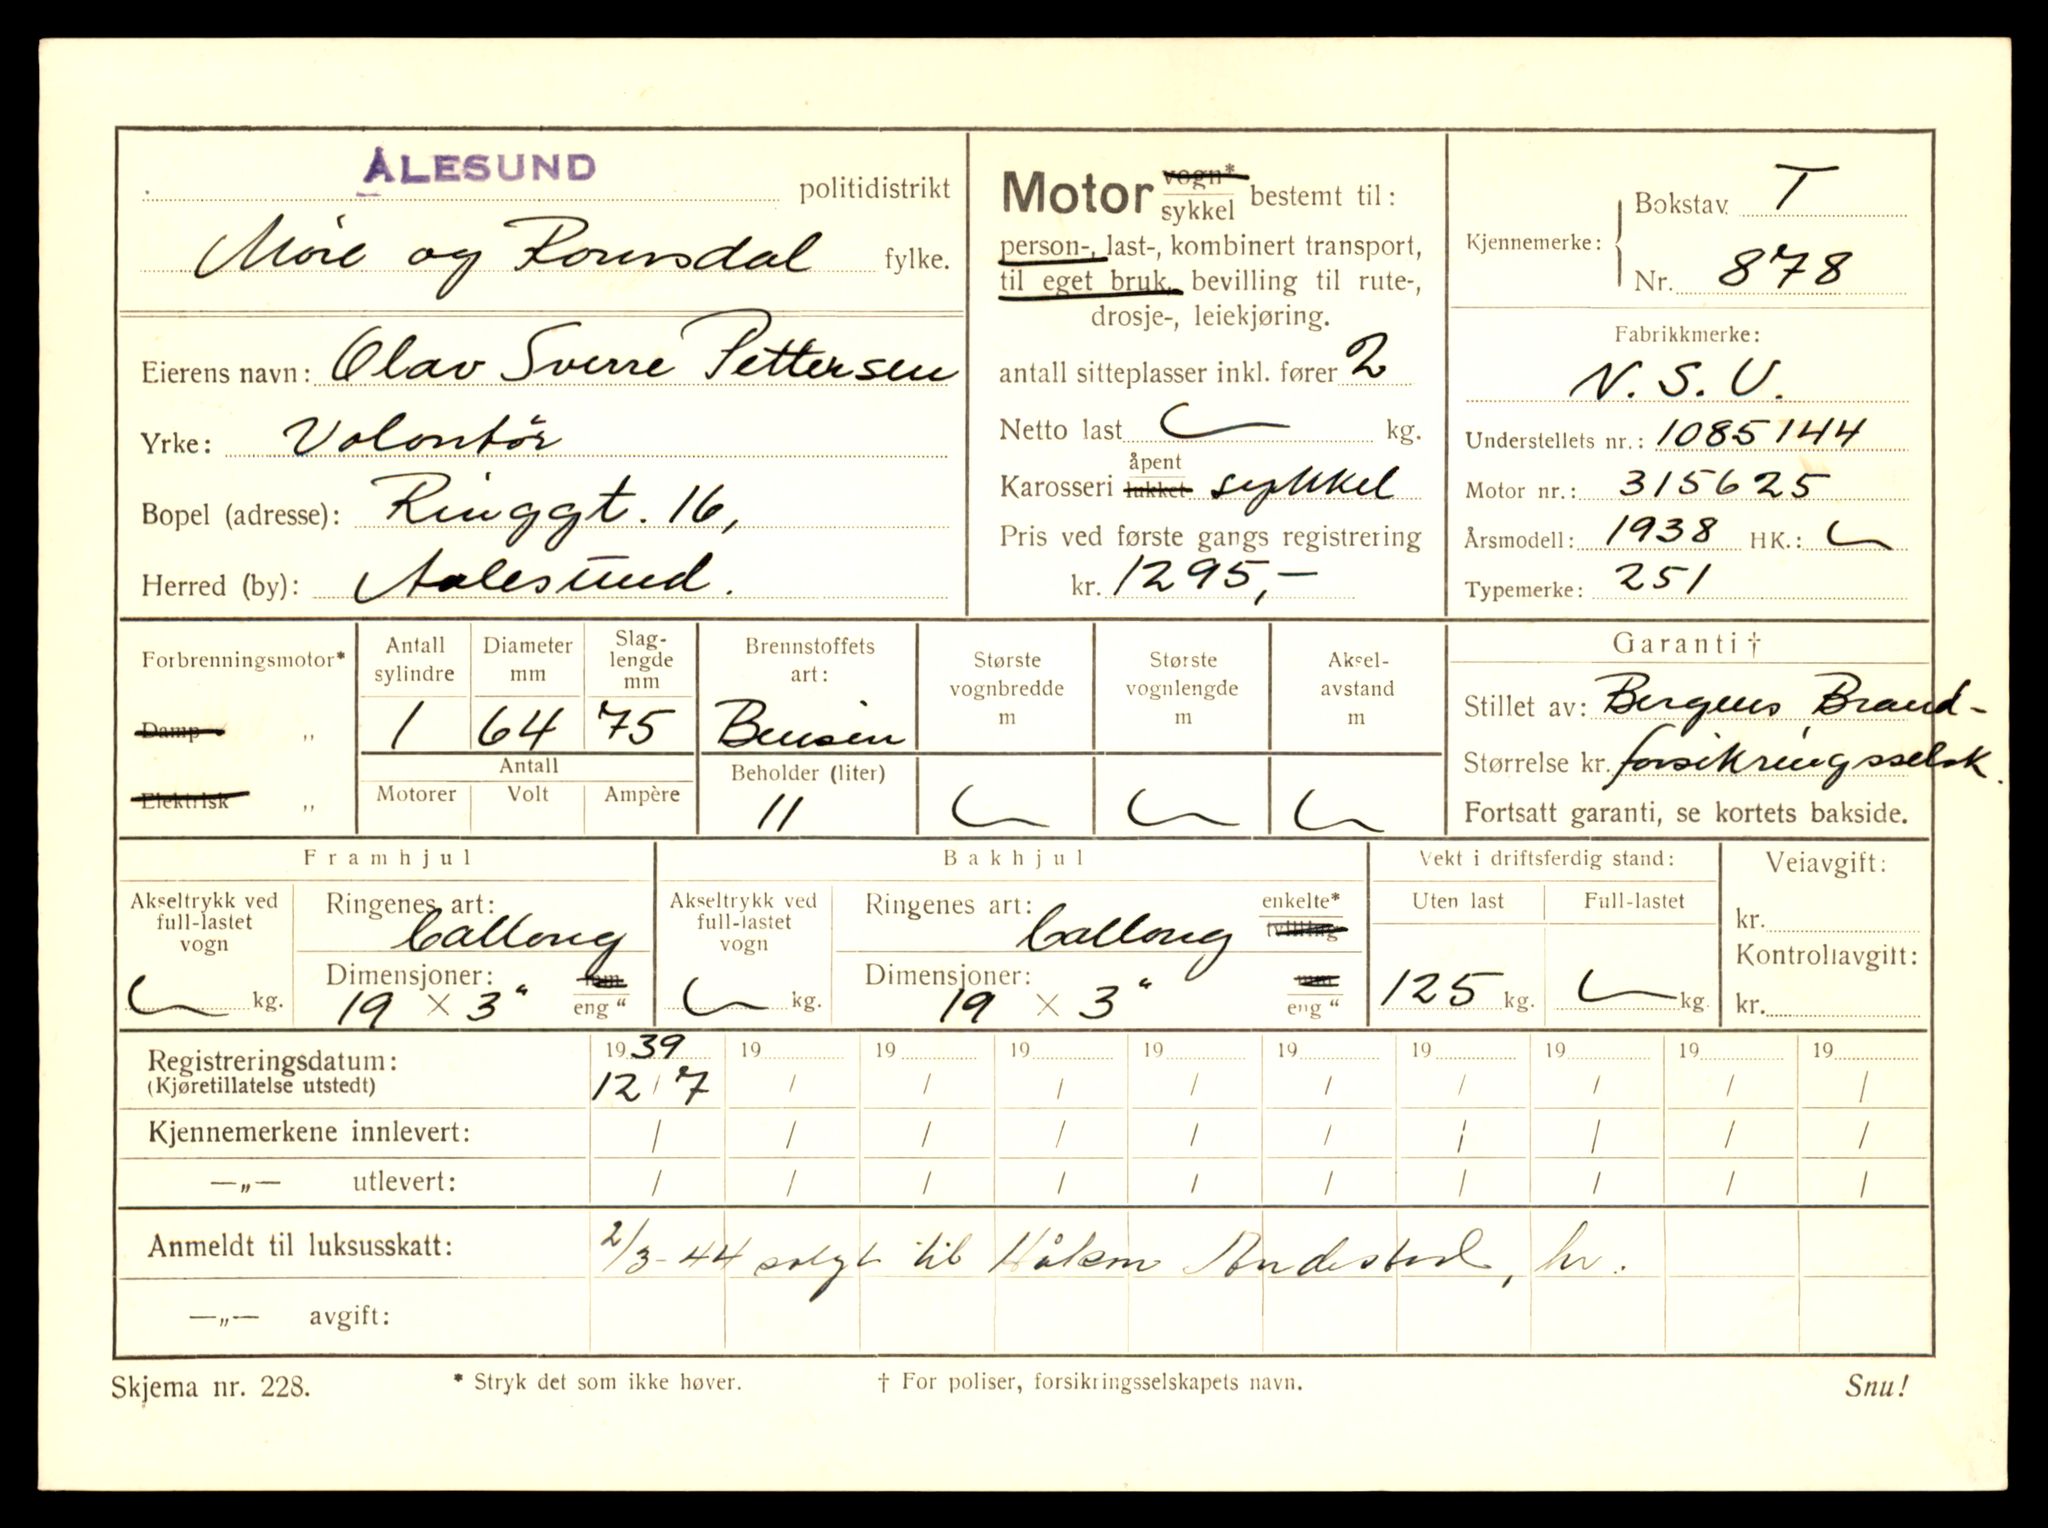 ÅLESUND politidistrikt
Møre og Romsdal fylke.
Eierens navn: Olav Sverre Pettersen
Yrke: Volontør
Bopel (adresse): Ringgt. 16,
Herred (by): Aalesund.
Motor vogn* sykkel bestemt til:
person-, last-, kombinert transport,
til eget bruk, bevilling til rute-,
drosje-, leiekjøring.
antall sitteplasser inkl. fører 2
Netto last kg.
Karosseri åpent lukket sykkel
Pris ved første gangs registrering
kr. 1295,-
Kjennemerke: Bokstav T
Nr. 878
Fabrikkmerke:
N.S.U.
Understellets nr.: 1085144
Motor nr.: 315625
Årsmodell: 1938 HK.:
Typemerke: 251
Forbrenningsmotor*
Damp „
Elektrisk „
Antall sylindre
1
Diameter mm
64
Slaglengde mm
75
Antall
Motorer Volt Ampère
Brennstoffets art:
Bensin
Beholder (liter)
11
Største vognbredde m
Største vognlengde m
Akselavstand m
Garanti †
Stillet av: Bergens Brand-
Størrelse kr. forsikringsselsk.
Fortsatt garanti, se kortets bakside.
Framhjul
Akseltrykk ved full-lastet vogn
kg.
Ringenes art:
Ballong
Dimensjoner: mm
19 × 3" eng "
Bakhjul
Akseltrykk ved full-lastet vogn
kg.
Ringenes art: enkelte*
Ballong tvilling
Dimensjoner: mm
19 × 3" eng "
Vekt i driftsferdig stand:
Uten last Full-lastet
125 kg. kg.
Veiavgift:
kr.
Kontrollavgift:
kr.
Registreringsdatum: 1939 19 19 19 19 19 19 19 19 19
(Kjøretillatelse utstedt) 12 / 7 / / / / / / / / /
Kjennemerkene innlevert: / / / / / / / / / /
—„— utlevert: / / / / / / / / / /
Anmeldt til luksusskatt: 2/3-44 solgt til Håkon Andestad, hr.
—„— avgift:
Skjema nr. 228. * Stryk det som ikke høver. † For poliser, forsikringsselskapets navn. Snu!